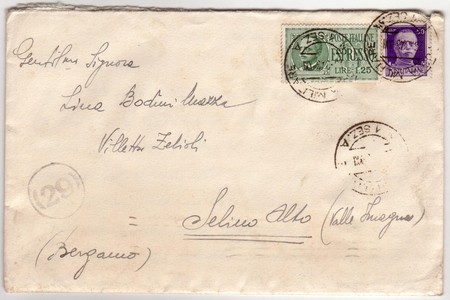 Gentilma Signora
Lina Bodini Mazza
Villetta Zelioli
Selino Alto (Valle Imagna)
(Bergamo)
29
POSTE ITALIANE
ESPRESSO
LIRE 1,25
50